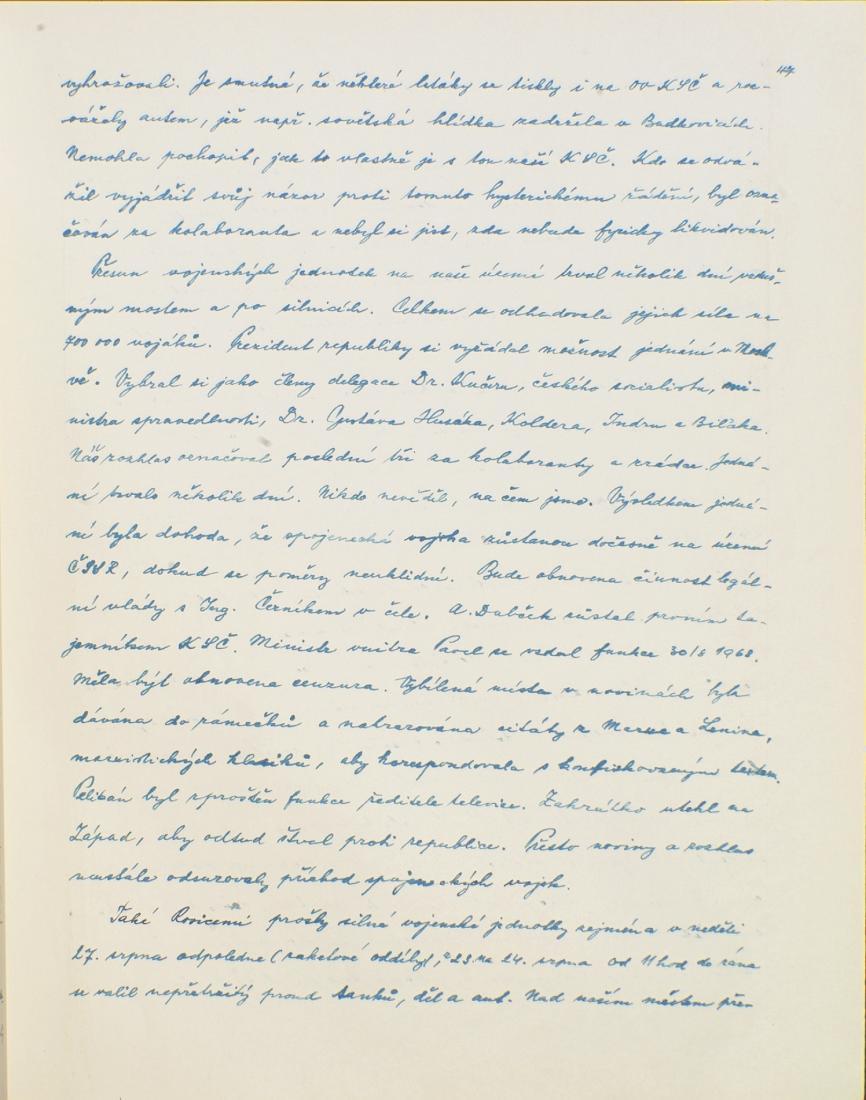 47
vyhrožovali. Je smutné, že některé letáky se tiskly i na OV KSČ a roz-
vážely autem, jež např. sovětská hlídka zadržela v Budkovicích.
Nemohla pochopit, jak to vlastně je s tou naší KSČ. Kdo se odvá-
žil vyjádřit svůj názor proti tomuto hysterickému řádění, byl ozna-
čován za kolaboranta a nebyl si jist, zda nebude fysicky likvidován.
Přesun vojenských jednotek na naše území trval několik dní vzduš-
ným mostem a po silnicích. Celkem se odhadovala jejich síla na
700 000 vojáků. Prezident republiky si vyžádal možnost jednání v Mosk-
vě. Vybral si jako členy delegace Dr. Kučeru, českého socialistu, mi-
nistra spravedlnosti, Dr. Gustáva Husáka, Koldera, Indru a Biľaka.
Náš rozhlas označoval poslední tři za kolaboranty a zrádce. Jedná-
ní trvalo několik dní. Nikdo nevěděl, na čem jsme. Výsledkem jedná-
ní byla dohoda, že spojenecká vojska zůstanou dočasně na území
ČSSR, dokud se poměry neuklidní. Bude obnovena činnost legál-
ní vlády s Ing. Černíkem v čele. A. Dubček zůstal prvním ta-
jemníkem KSČ. Ministr vnitra Pavel se vzdal funkce 30/8 1968.
Měla být obnovena cenzura. Vybílená místa v novinách byla
dávána do rámečků a nahrazována citáty z Marxe a Lenina,
marxistických klasiků, aby korespondovala s konfiskovaným textem.
Pelikán byl zproštěn funkce ředitele televize. Zahrádko utekl na
Západ, aby odtud štval proti republice. Přesto noviny a rozhlas
neustále odsuzovaly příchod spojeneckých vojsk.
Také Rosicemi prošly silné vojenské jednotky zejména v neděli
27. srpna odpoledne (raketové oddíly), z 23. na 24. srpna od 11 hod do rána
se valil nepřetržitý proud tanků, děl a aut. Nad naším městem pře-